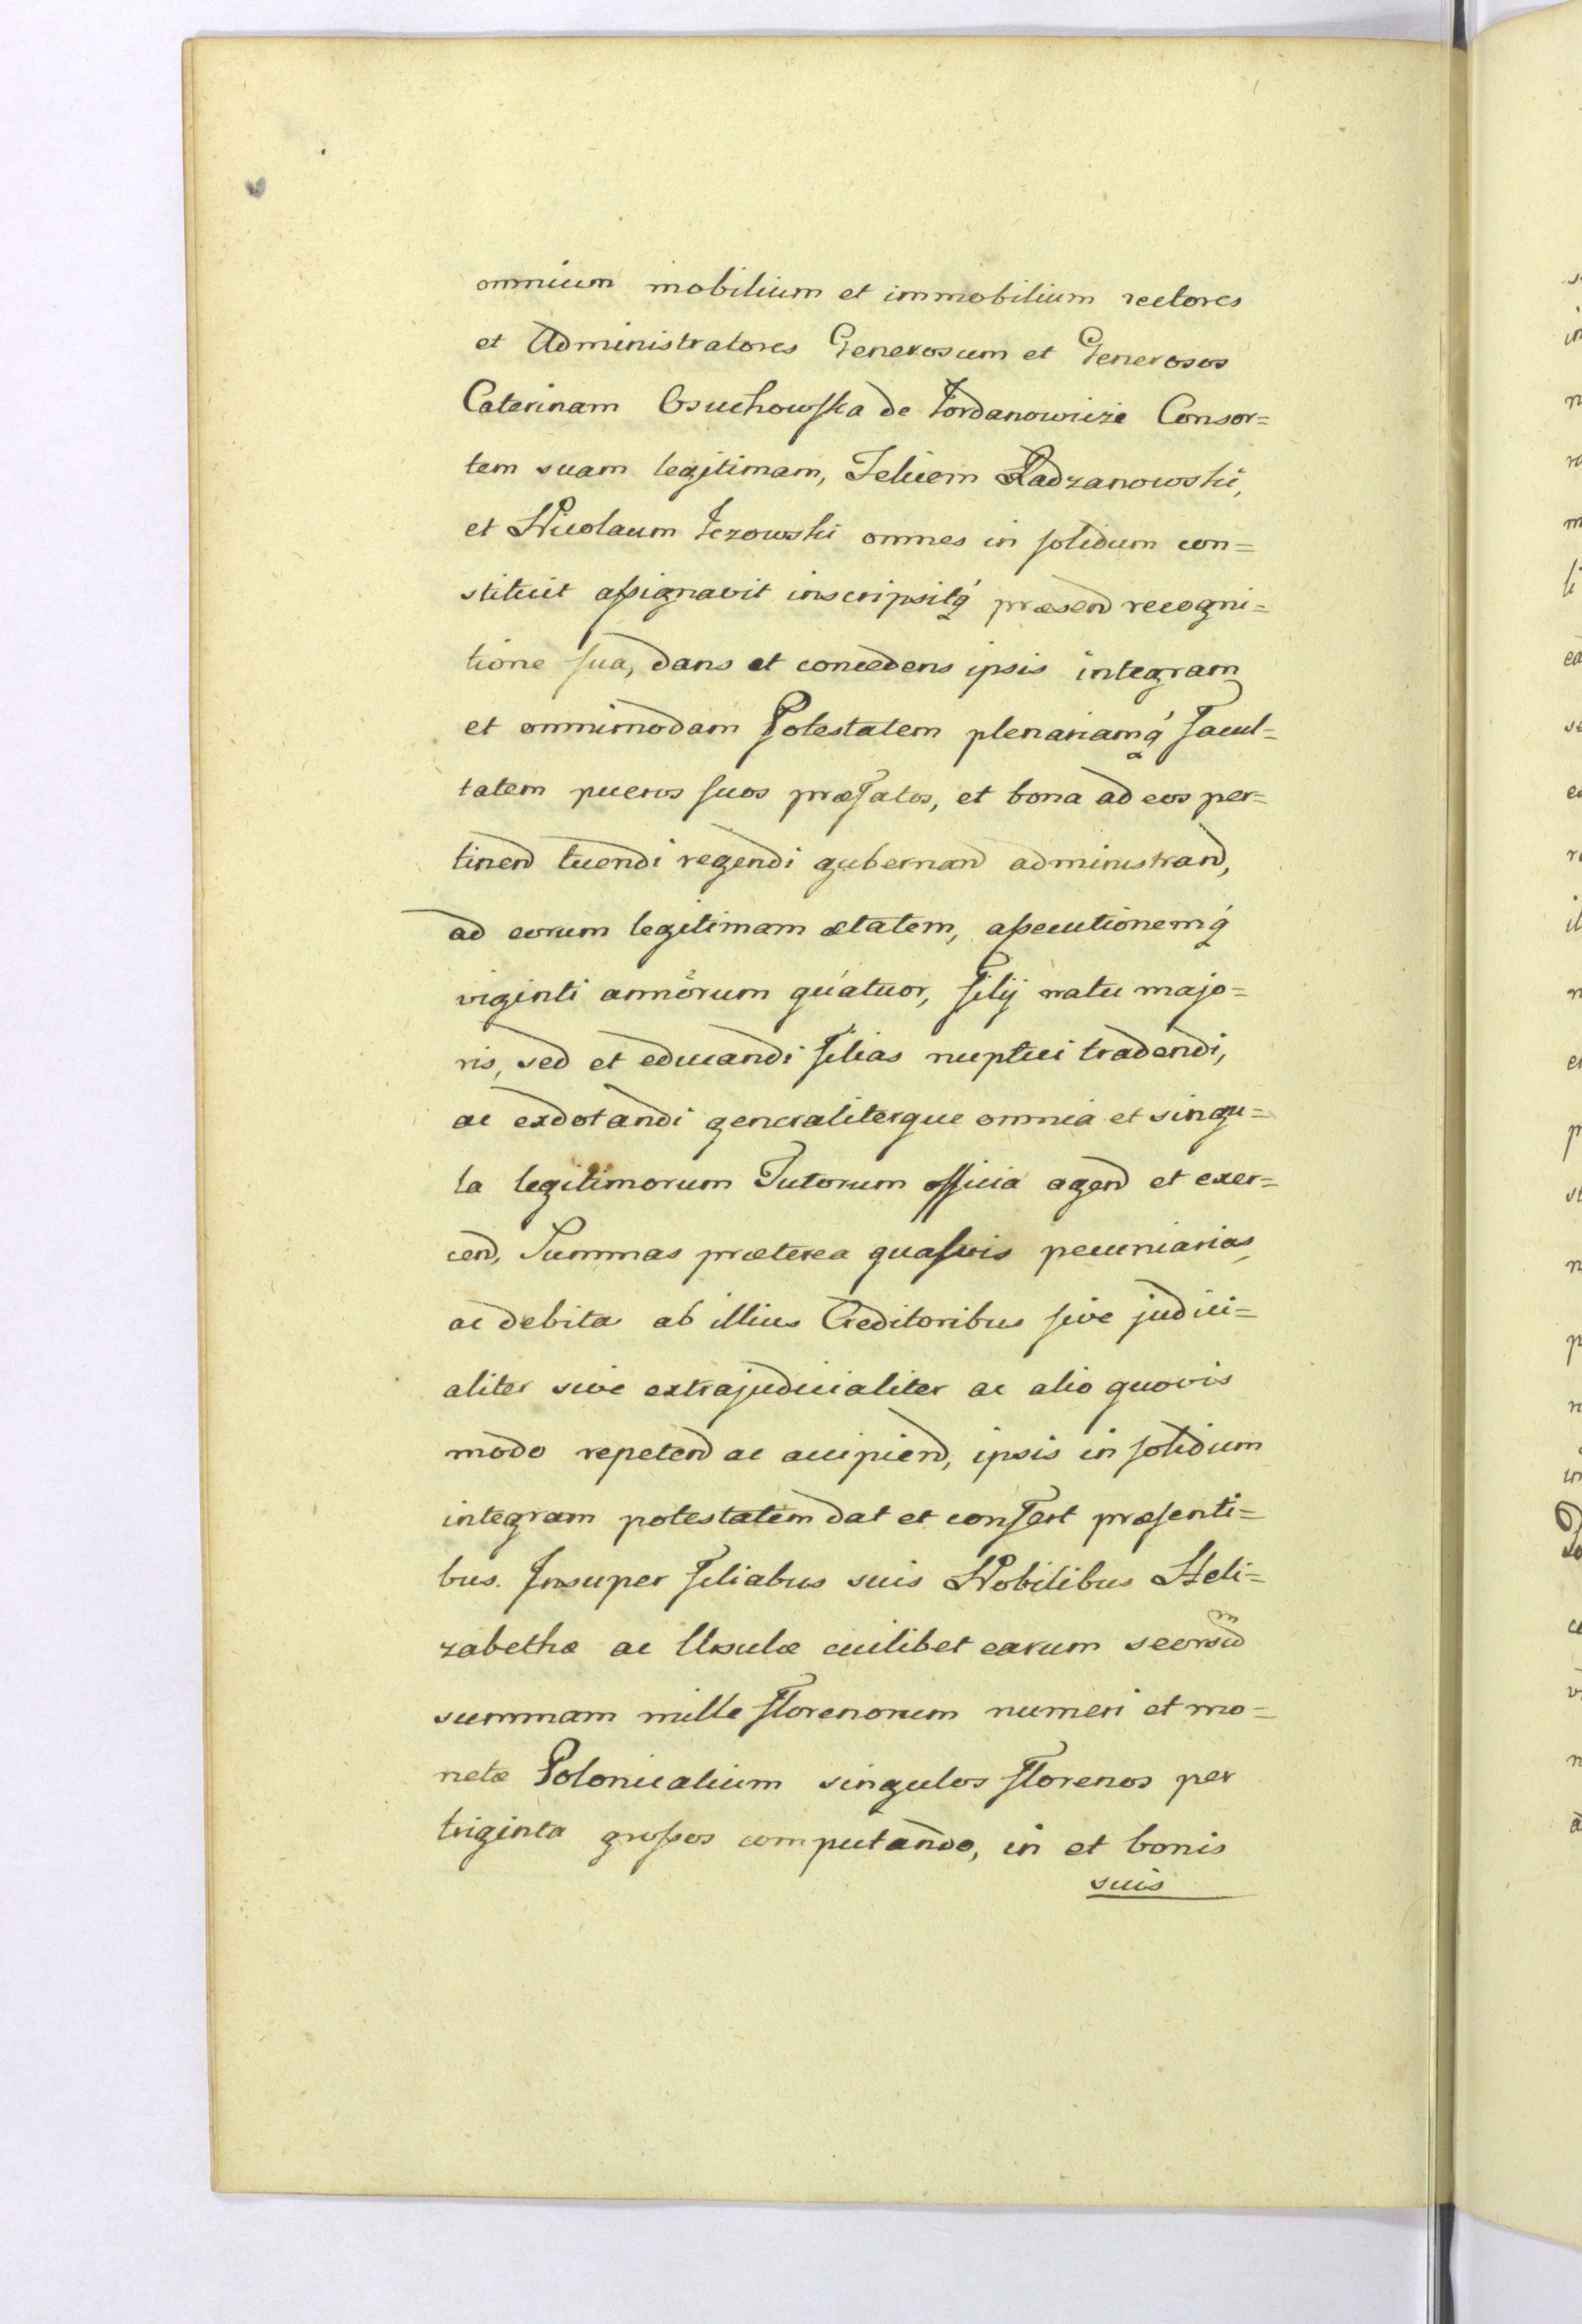 omnium mobilium et immobilium rectores
et Administratores Generosum et Generosos
Caterinam Osuchowska de Jordanowicze Consor=
tem suam legitimam, Felicem Radzanowski,
et Nicolaum Jezowski omnes in solidum con=
stituit assignavit inscripsitq́ præsend recogni=
tione sua, dans et concedens ipsis integram
et omnimodam Potestatem plenariamq́ facul=
tatem pueros suos præfatos, et bona ad eos per=
tinend tuendi regendi gubernand administrand,
ad eorum legitimam ætatem, assecutionemq́
viginti annorum quatuor, filij natu majo=
ris, sed et educandi filias nuptui tradendi,
ac exdotandi generaliterque omnia et singu=
la legitimorum Tutorum officia agend et exer=
cend, Summas præterea quasvis pecuniarias,
ac debita ab illius Creditoribus sive judici=
aliter sive extrajudicialiter ac alio quovis
modo repetend ac accipiend, ipsis in solidum
integram potestatem dat et confert præsenti=
bus. Insuper filiabus suis Nobilibus Heli=
zabethæ ac Ursulæ cuilibet earum seorsum
summam mille florenorum numeri et mo=
netæ Polonicalium singulos florenos per
triginta grossos computando, in et bonis
suis